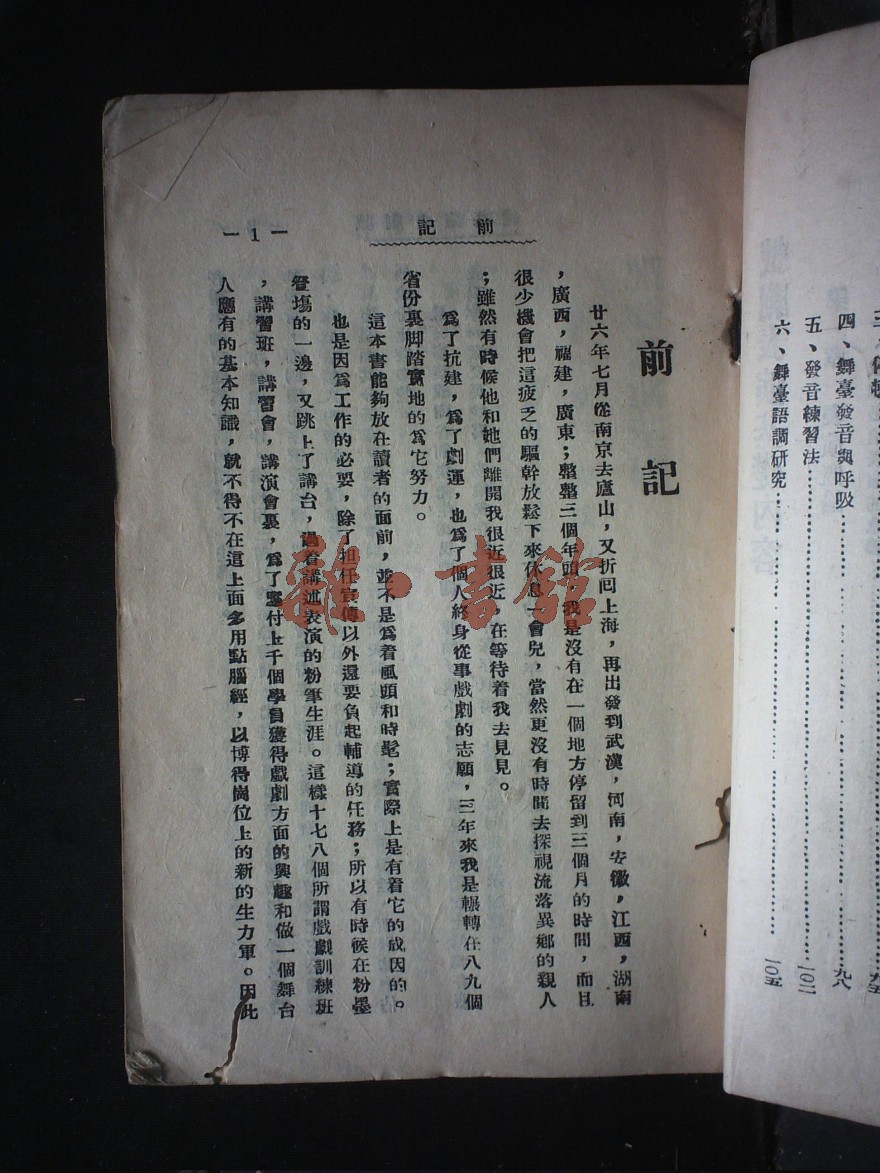 三、
四、舞臺發音與呼吸……九八
五、發音練習法……一〇二
六、舞臺語調研究……一〇五
前記
—1—
前記
廿六年七月從南京去廬山，又折囘上海，再出發到武漢，河南，安徽，江西，湖南
，廣西，福建，廣東；整整三個年頭，我是沒有在一個地方停留到三個月的時間，而且
很少機會把這疲乏的軀幹放鬆下來休息一會兒，當然更沒有時間去探視流落異鄉的親人
；雖然有時候他和她們離開我很近很近，在等待着我去見見。
爲了抗建，爲了劇運，也爲了個人終身從事戲劇的志願，三年來我是輾轉在八九個
省份裏脚踏實地的爲它努力。
這本書能夠放在讀者的面前，並不是爲着風頭和時髦；實際上是有着它的成因的。
也是因爲工作的必要，除了担任宣傳以外還要負起輔導的任務；所以有時候在粉墨
登塲的一邊，又跳上了講台，過着講述表演的粉筆生涯。這樣十七八個所謂戲劇訓練班
，講習班，講習會，講演會裏，爲了應付上千個學員獲得戲劇方面的興趣和做一個舞台
人應有的基本知識，就不得不在這上面多用點腦經，以博得崗位上的新的生力軍。因此
雜·書館